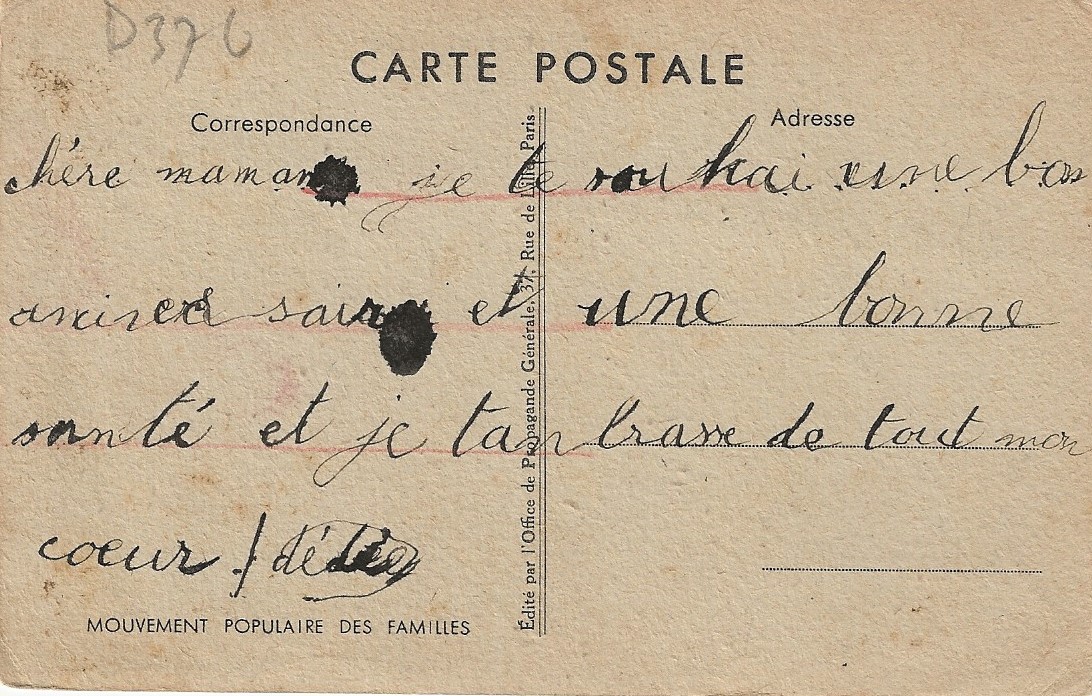 D376
CARTE POSTALE
Correspondance
Adresse
chère maman je te souhai une bon
anisersair et une bonne
santé et je tanbrasse de tout mon
coeur / dédée
MOUVEMENT POPULAIRE DES FAMILLES
Édité par l'Office de Propagande Générale, 37, Rue de Lille, Paris